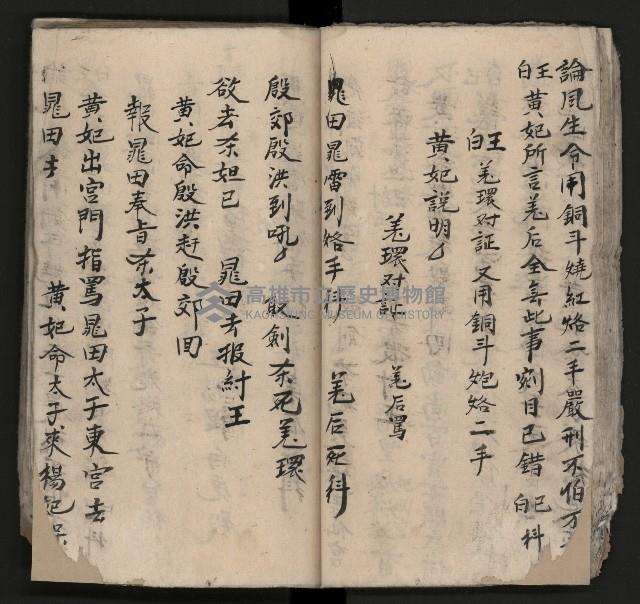 論風生令用銅斗燒紅烙二手嚴刑不怕万
王白黃妃所言羌后全無此事剜目已錯 已白科
王白羌環対証又用銅斗炮烙二手
黃妃説明
羌環対証 羌后罵
晁田晁雷到烙手 明 羌后死科
殷郊殷洪到吼 取劍杀死羌環科
欲去杀妲己 晁田去报紂王
黃妃命殷洪赶殷郊回
報晁田奉旨杀太子
黃妃出宮門指罵晁田太子東宮去科
晁田去 黃妃命太子求楊妃
高雄市立歷史博物館
KAOHSIUNG MUSEUM OF HISTORY